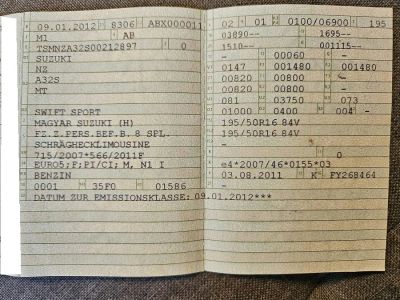 09.01.2012 8306 ABX000011
M1 AB
TSMNZA32S00212897 0
SUZUKI
NZ
A32S
MT
SWIFT SPORT
MAGYAR SUZUKI (H)
FZ.Z.PERS.BEF.B. 8 SPL.
SCHRÄGHECKLIMOUSINE
715/2007*566/2011F
EURO5;F;PI/CI; M, N1 I
BENZIN
0001 35F0 01586
DATUM ZUR EMISSIONSKLASSE: 09.01.2012***
02 01 0100/06900 195
03890-- 1695--
1510-- 001115--
- 00060 -
0147 001480 001480
00820 00800 -
00820 00800 -
081 03750 073
01000 0400 004 -
195/50R16 84V
195/50R16 84V
- 0
e4*2007/46*0155*03
03.08.2011 K FY268464